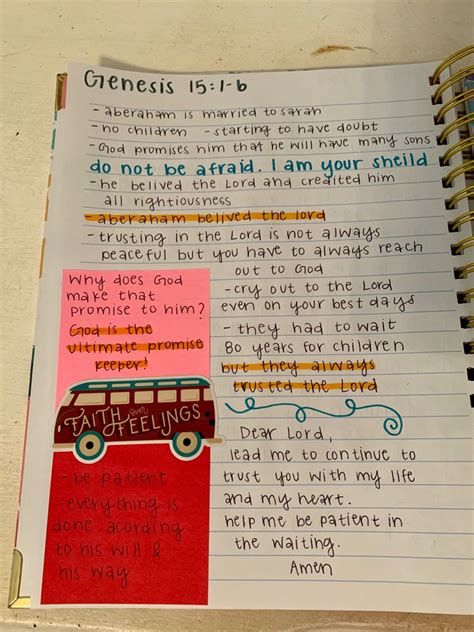 Genesis 15:1-6
- aberaham is married to sarah
- no children - starting to have doubt
- God promises him that he will have many sons
do not be afraid. I am your sheild
- he belived the Lord and credited him
all rightiousness
- aberaham belived the lord
- trusting in the Lord is not always
peaceful but you have to always reach
out to God
- cry out to the Lord
even on your best days
- they had to wait
80 years for children
but they always
trusted the Lord
Why does God
make that
promise to him?
God is the
ultimate promise
keeper!
FAITH over
FEELINGS
- be patient
- everything is
done acording
to his will &
his way
Dear Lord,
lead me to continue to
trust you with my life
and my heart.
help me be patient in
the waiting.
Amen